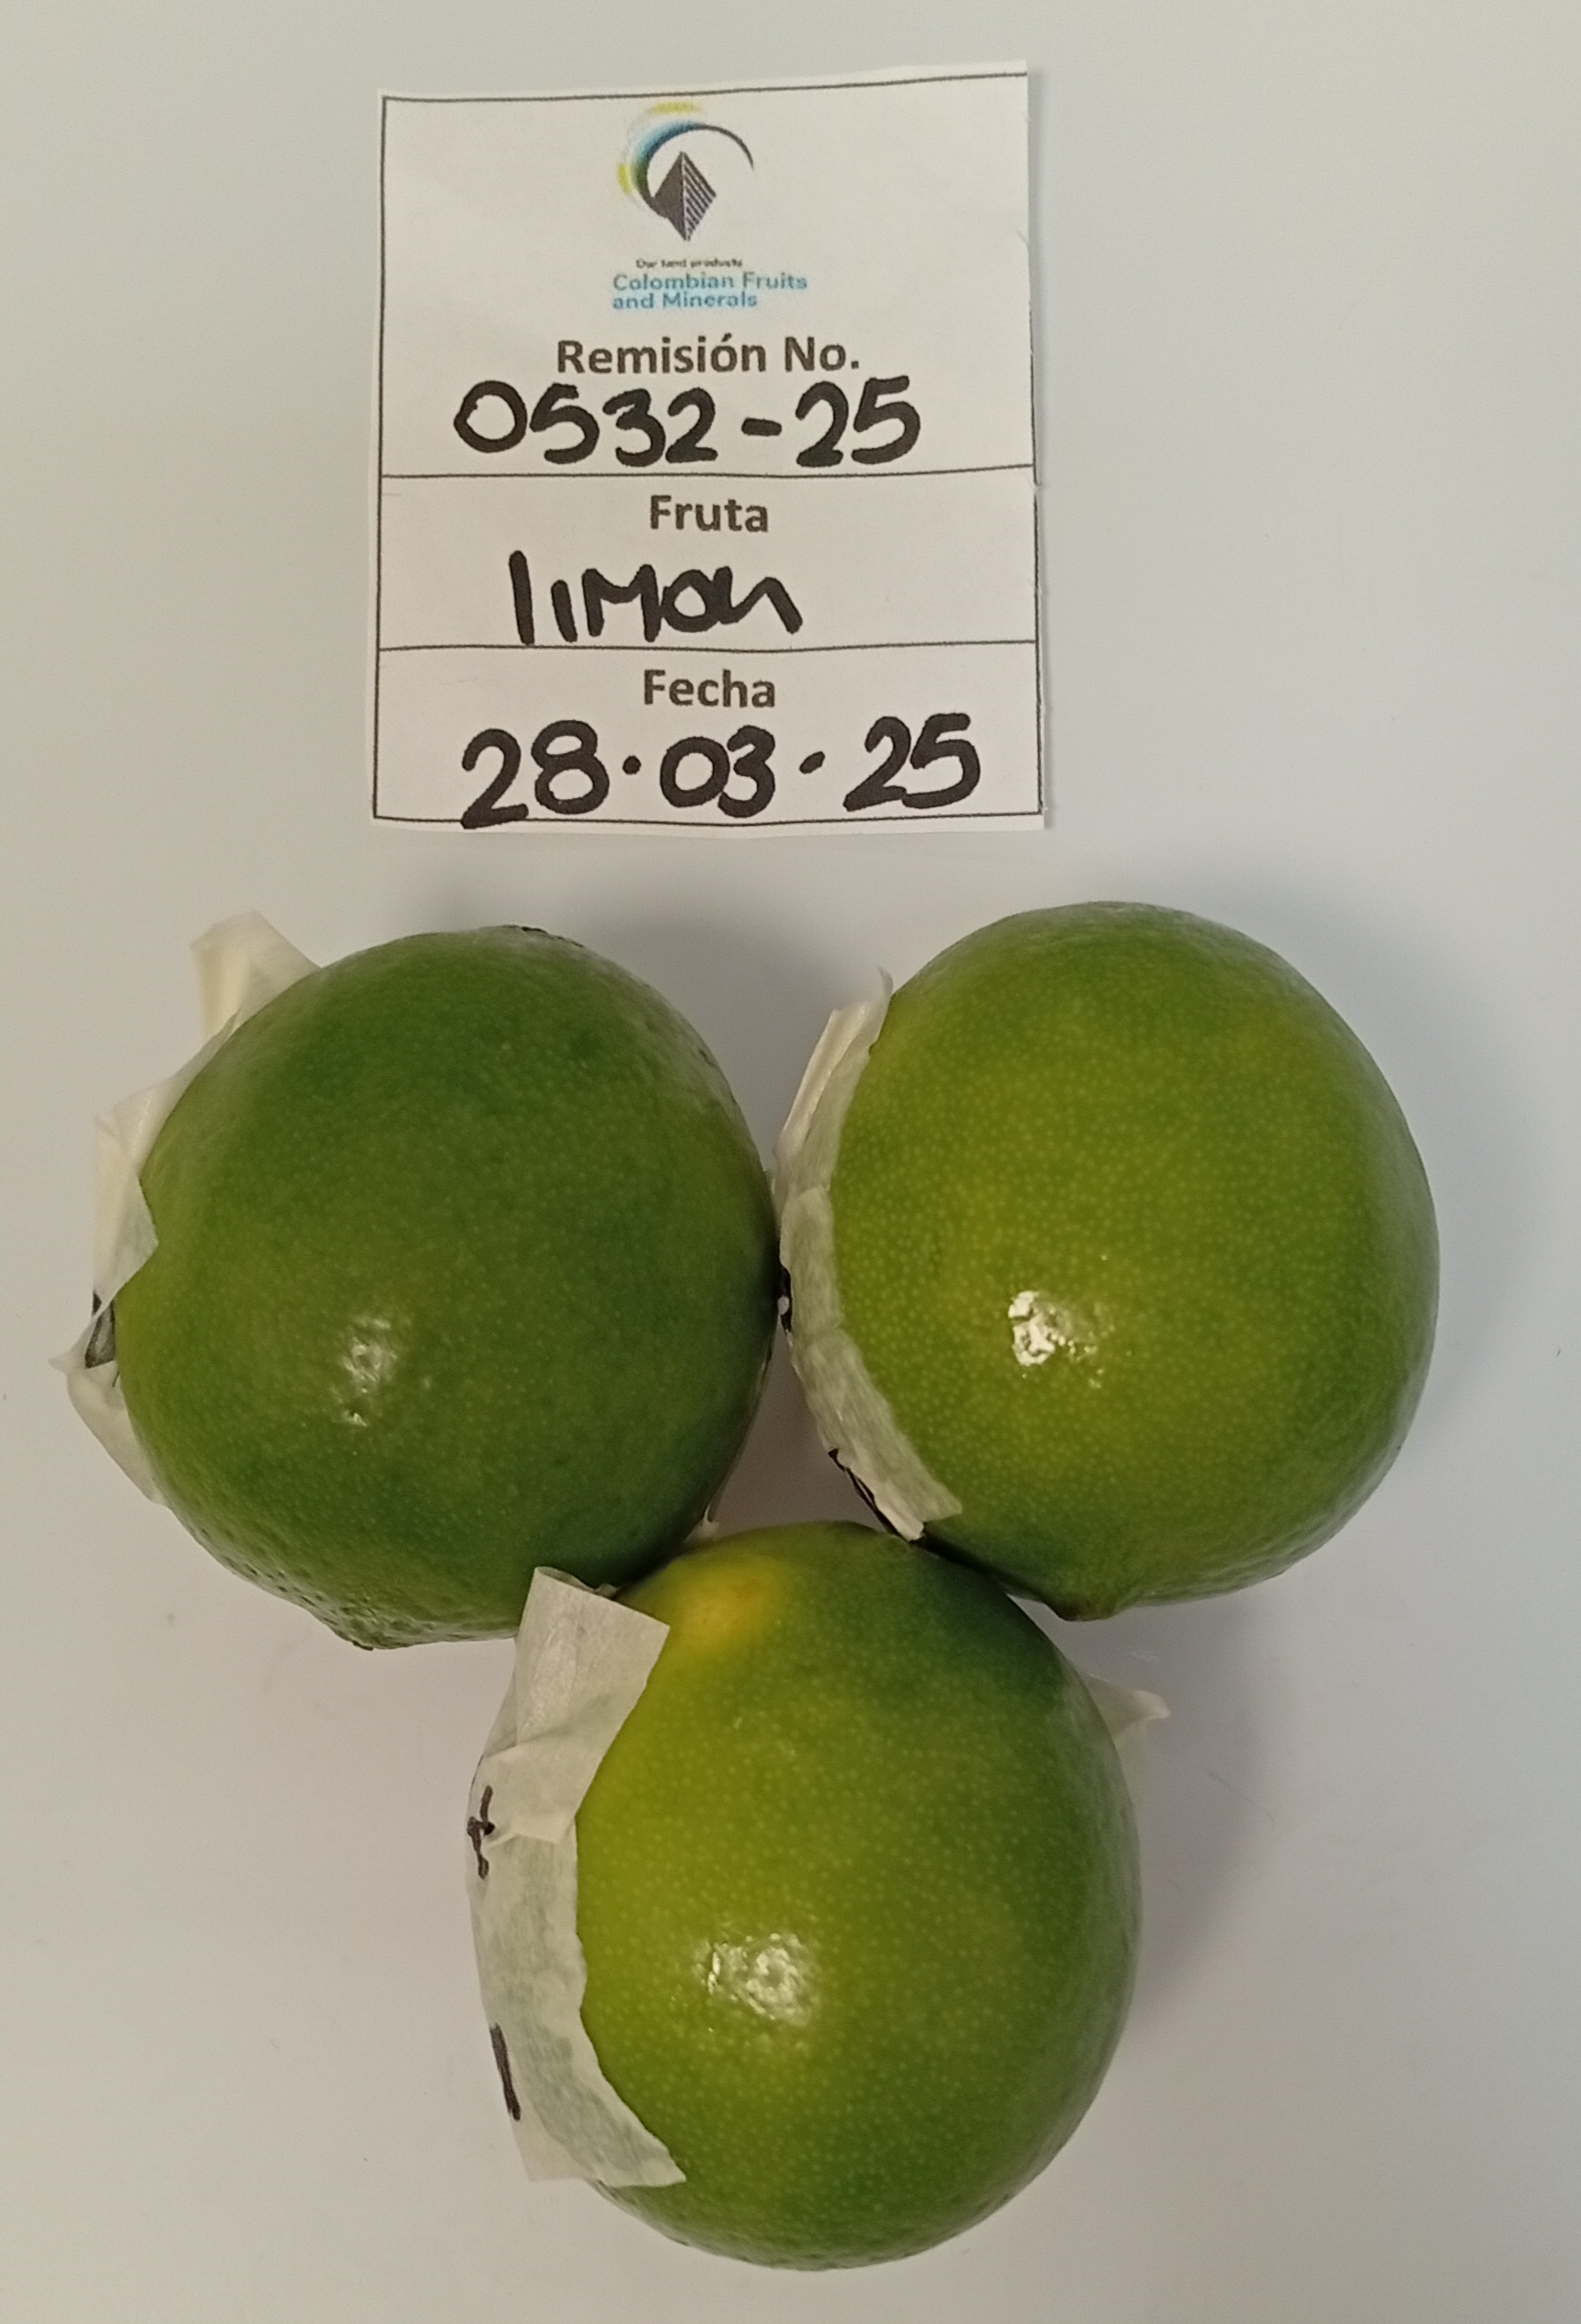 Our land products
Colombian Fruits
and Minerals
Remisión No.
0532-25
Fruta
limon
Fecha
28.03.25